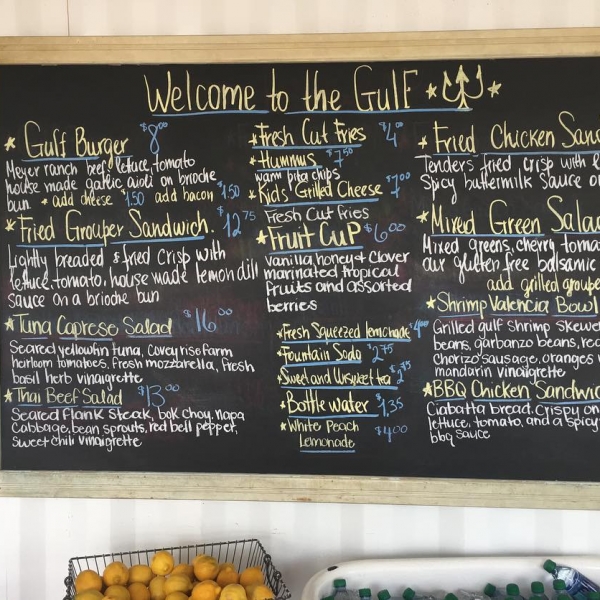 Welcome to the Gulf
Gulf Burger $8.00
Meyer ranch beef, lettuce, tomato
house made garlic aioli on brioche
bun * add cheese $1.50 add bacon $1.50
Fried Grouper Sandwich. $12.75
Lightly breaded & fried crisp with
lettuce, tomato, house made lemon dill
sauce on a brioche bun
Tuna Caprese Salad $16.00
Seared yellowfin tuna, Covey rise farm
heirloom tomatoes, fresh mozzarella, fresh
basil herb vinaigrette
Thai Beef Salad $13.00
Seared flank steak, bok choy, napa
cabbage, bean sprouts, red bell pepper,
sweet chili vinaigrette
Fresh Cut Fries $4.00
Hummus $7.50
warm pita chips
Kid's Grilled Cheese $7.00
Fresh Cut fries
Fruit Cup $6.00
Vanilla, honey & clover
marinated tropical
fruits and assorted
berries
Fresh Squeezed lemonade $4.00
Fountain Soda $2.75
Sweet and Unsweet tea
Bottle Water $1.35
White Peach $4.00
Lemonade
Fried Chicken Sand
Tenders fried crisp with
Spicy buttermilk Sauce o
Mixed Green Salad
Mixed greens, cherry toma
our gluten free balsamic
add grilled groupe
Shrimp Valencia Bowl
Grilled gulf shrimp skewe
beans, garbanzo beans, re
chorizo sausage, oranges
mandarin vinaigrette
BBQ Chicken Sandwic
Ciabatta bread. Crispy on
lettuce, tomato, and a spicy
bbq sauce